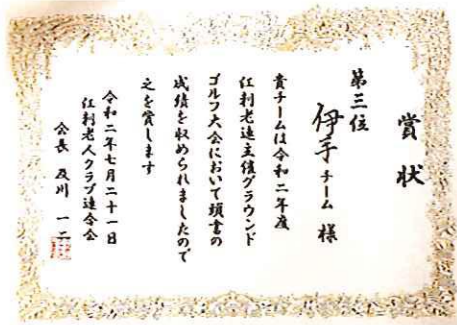 賞状
第三位
伊手チーム 様
貴チームは令和二年度
江刺老連主催グラウンド
ゴルフ大会において頭書の
成績を収められましたので
之を賞します
令和二年七月二十一日
江刺老人クラブ連合会
会長 及川 一二